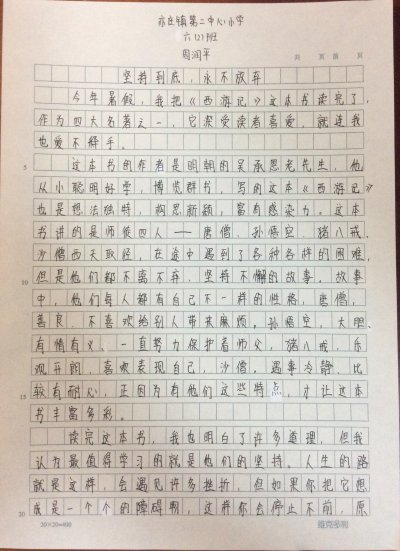 亦庄镇第二中心小学
六(2)班
周润平
共 页 第 页
坚持到底,永不放弃
今年暑假,我把《西游记》这本书读完了,
作为四大名著之一,它深受读者喜爱,就连我
也爱不释手。
5 这本书的作者是明朝的吴承恩老先生,他
从小聪明好学,博览群书,写的这本《西游记》
也是想法独特,构思新颖,富有感染力。这本
书讲的是师徒四人——唐僧、孙悟空、猪八戒、
沙僧西天取经,在途中遇到了各种各样的困难,
10 但是他们都不离不弃、坚持不懈的故事。故事
中,他们每人都有自己不一样的性格,唐僧,
善良、不喜欢给别人带来麻烦。孙悟空,大胆、
有情有义、一直努力保护着师父,猪八戒,乐
观开朗,喜欢表现自己,沙僧,遇事冷静、比
15 较有耐心,正因为有他们这些特点,才让这本
书丰富多彩。
读完这本书,我也明白了许多道理,但我
认为最值得学习的就是他们的坚持。人生的路
就是这样,会遇见许多挫折,但如果你把它想
20 成是一个个的障碍物,这样你会停止不前,原
20×20=400